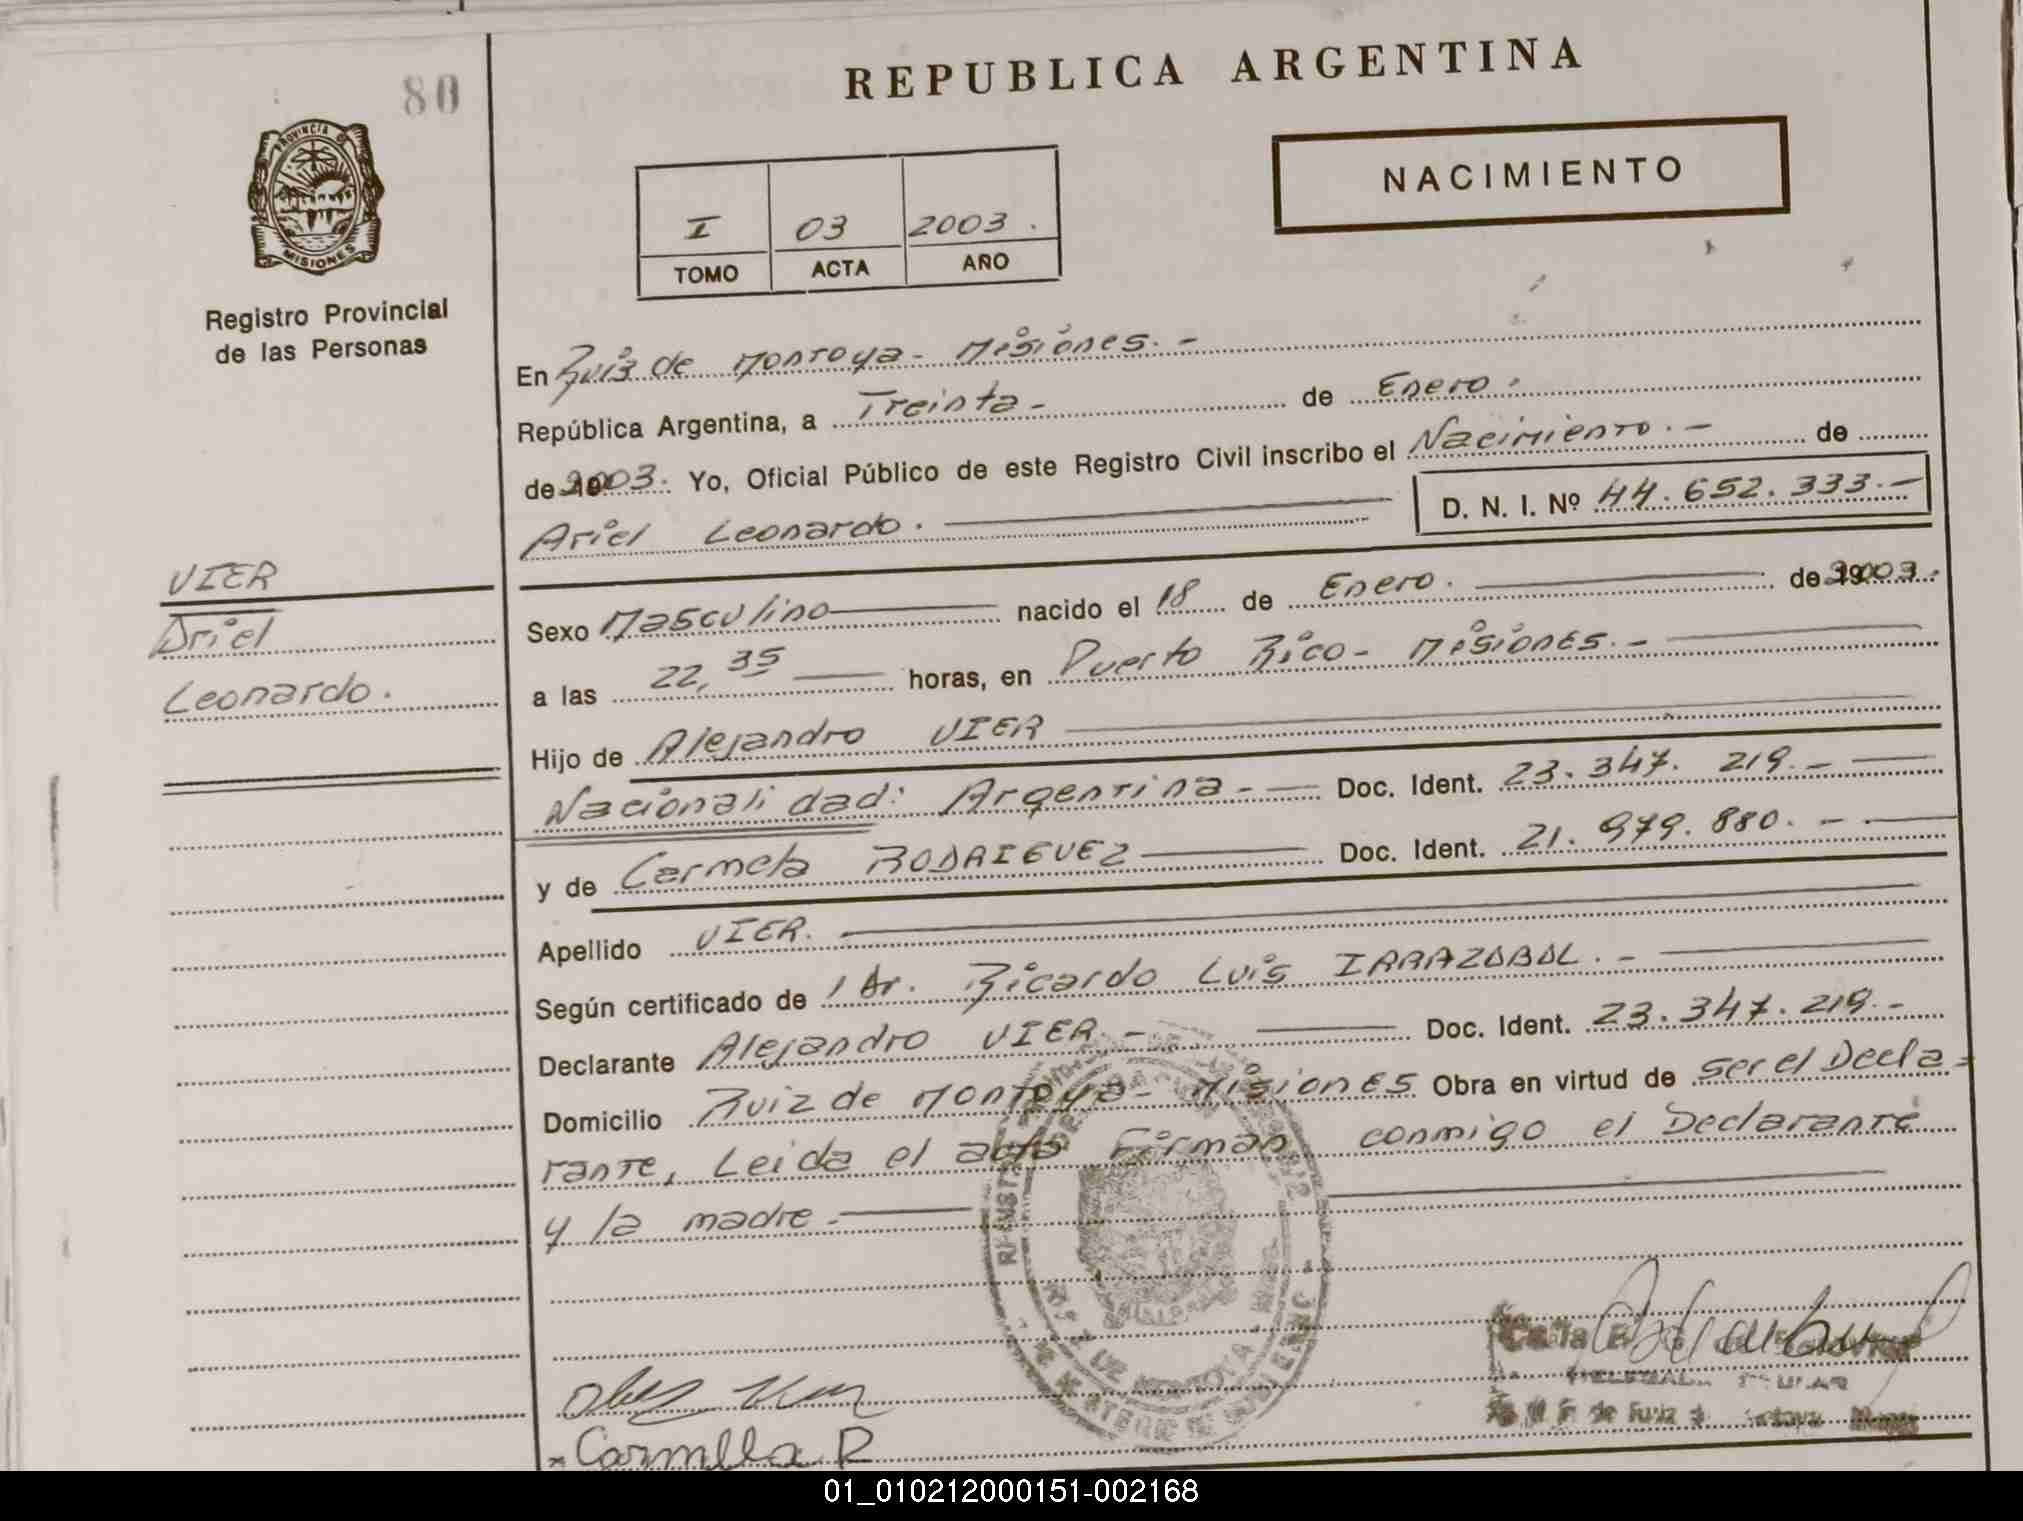 80
REPUBLICA ARGENTINA
PROVINCIA DE
MISIONES
Registro Provincial
de las Personas
NACIMIENTO
I 03 2003.
TOMO ACTA AÑO
En Ruiz de Montoya - Misiones. -
República Argentina, a Treinta - de Enero.
de 2003. Yo, Oficial Público de este Registro Civil inscribo el Nacimiento. - de
Ariel Leonardo. D. N. I. Nº 44.652.333. -
VIER
Ariel
Leonardo.
Sexo Masculino nacido el 18 de Enero. de 2003.
a las 22,35 horas, en Puerto Rico - Misiones. -
Hijo de Alejandro VIER
Nacionalidad: Argentina - Doc. Ident. 23.347.219. -
y de Carmela RODRIGUEZ Doc. Ident. 21.979.880. -
Apellido VIER.
Según certificado de 1 Dr. Ricardo Luis IRRAZABAL. -
Declarante Alejandro VIER - Doc. Ident. 23.347.219. -
Domicilio Ruiz de Montoya - Misiones Obra en virtud de ser el Decla-
rante, Leida el acta Firman conmigo el Declarante
y la madre. -
DE MONTOYA
Carmella R
01_010212000151-002168